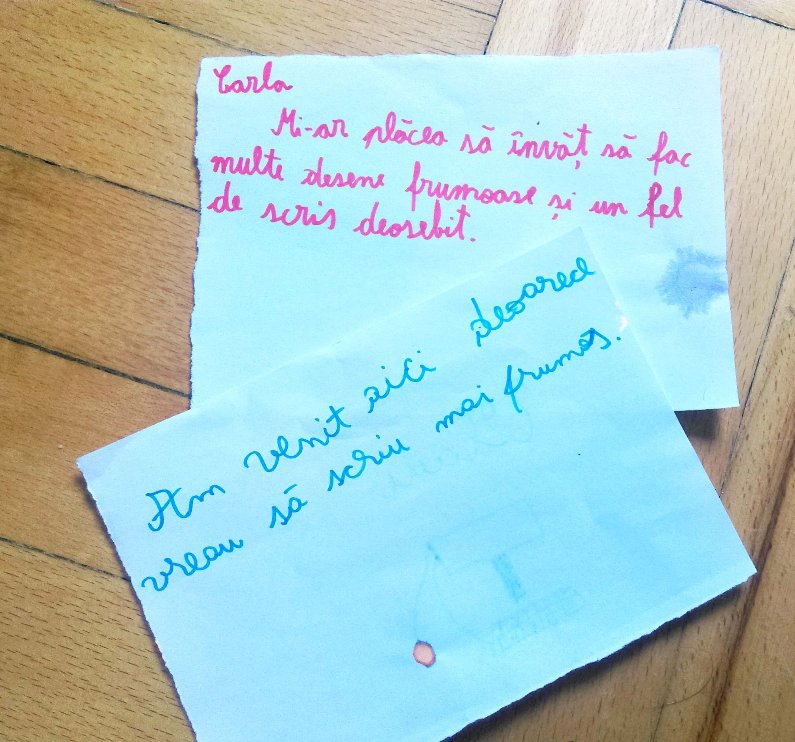 Carla
Mi-ar plăcea să învăț să fac
multe desene frumoase și un fel
de scris deosebit.
Am venit aici deoarece
vreau să scriu mai frumos.